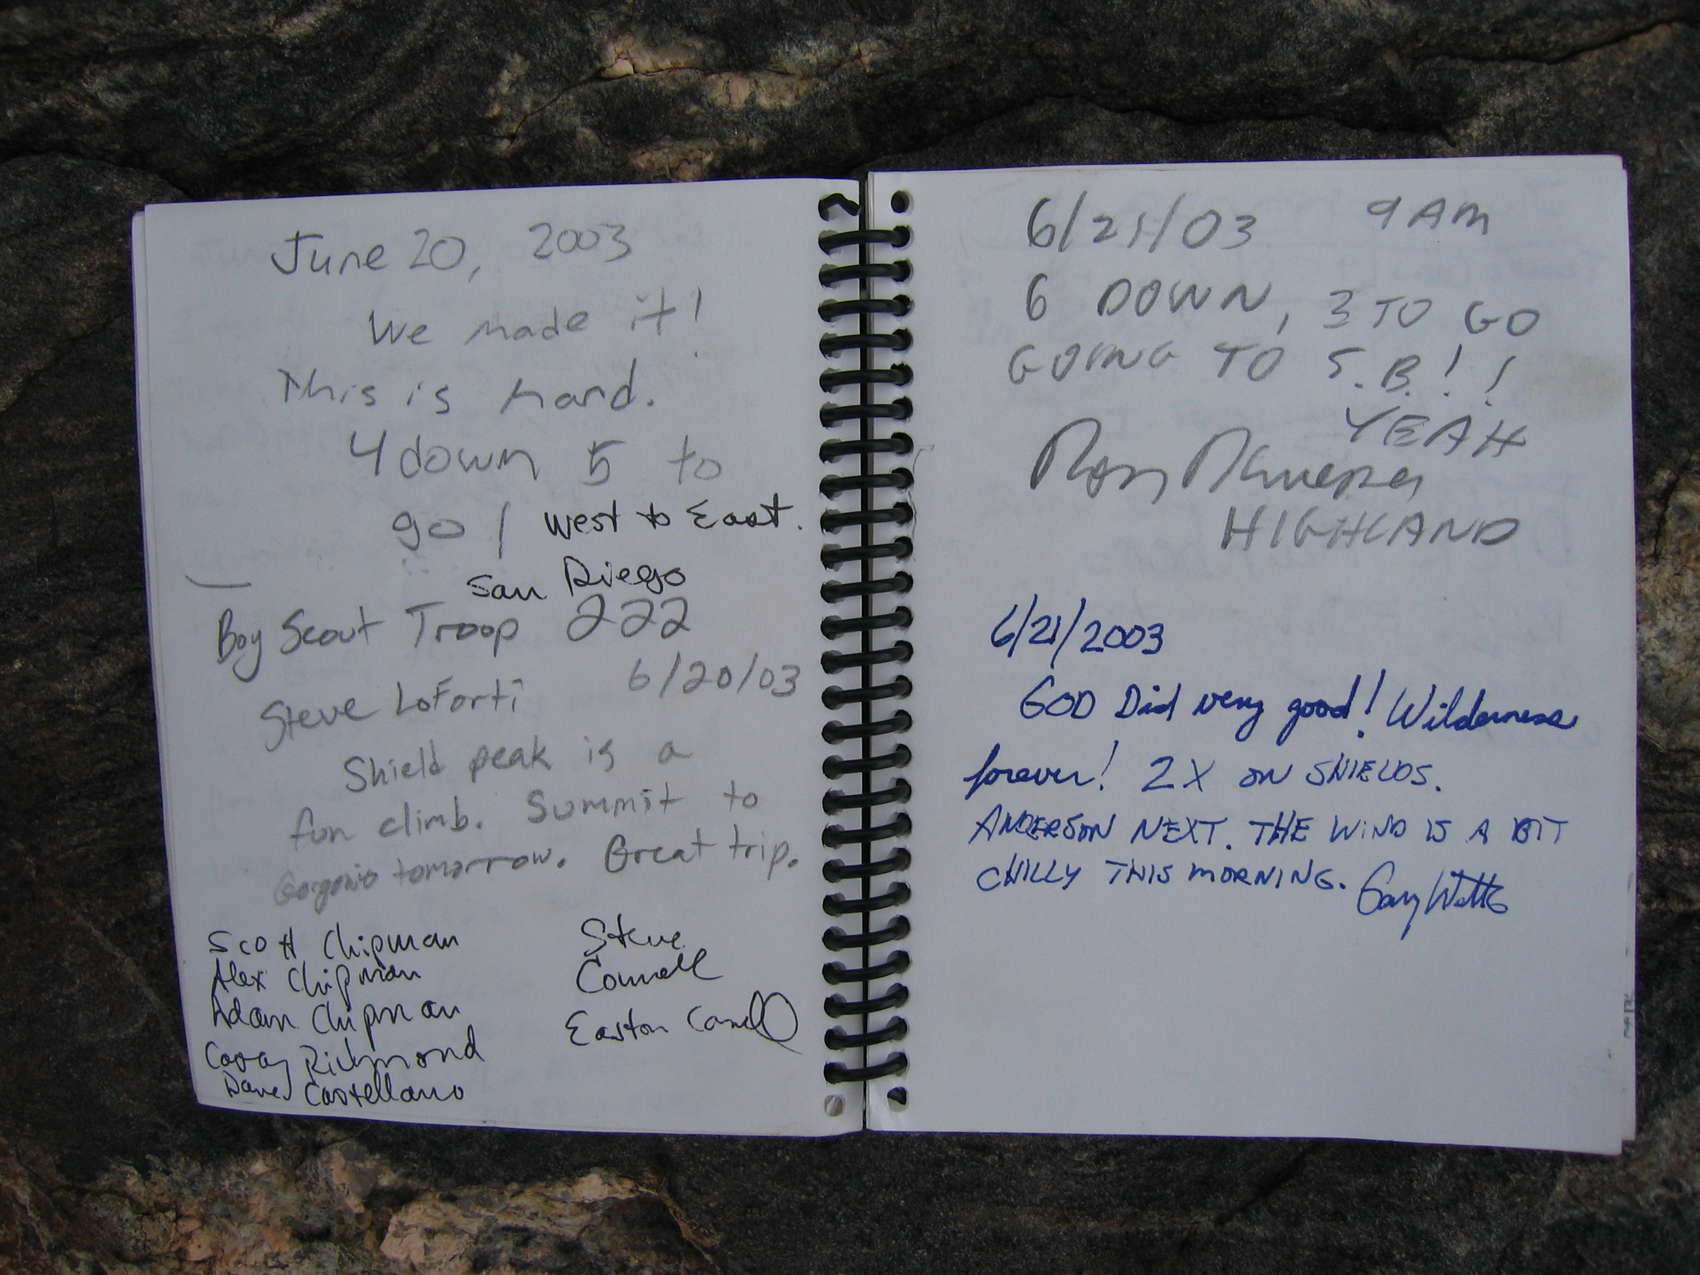 June 20, 2003
We made it!
This is hard.
4 down 5 to
go / West to East.
San Diego
Boy Scout Troop 222
6/20/03
Steve LoForti
Shield peak is a
fun climb. Summit to
Gorgonio tomorrow. Great trip.
Scott Chipman
Alex Chipman
Adam Chipman
Richmond
Dave Castellano
Steve
Connell
Easton Connell
6/21/03 9 AM
6 DOWN, 3 TO GO
GOING TO S.B.!!
YEAH
HIGHLAND
6/21/2003
GOD Did very good! Wilderness
forever! 2X ON SHIELDS.
ANDERSON NEXT. THE WIND IS A BIT
CHILLY THIS MORNING. Gary